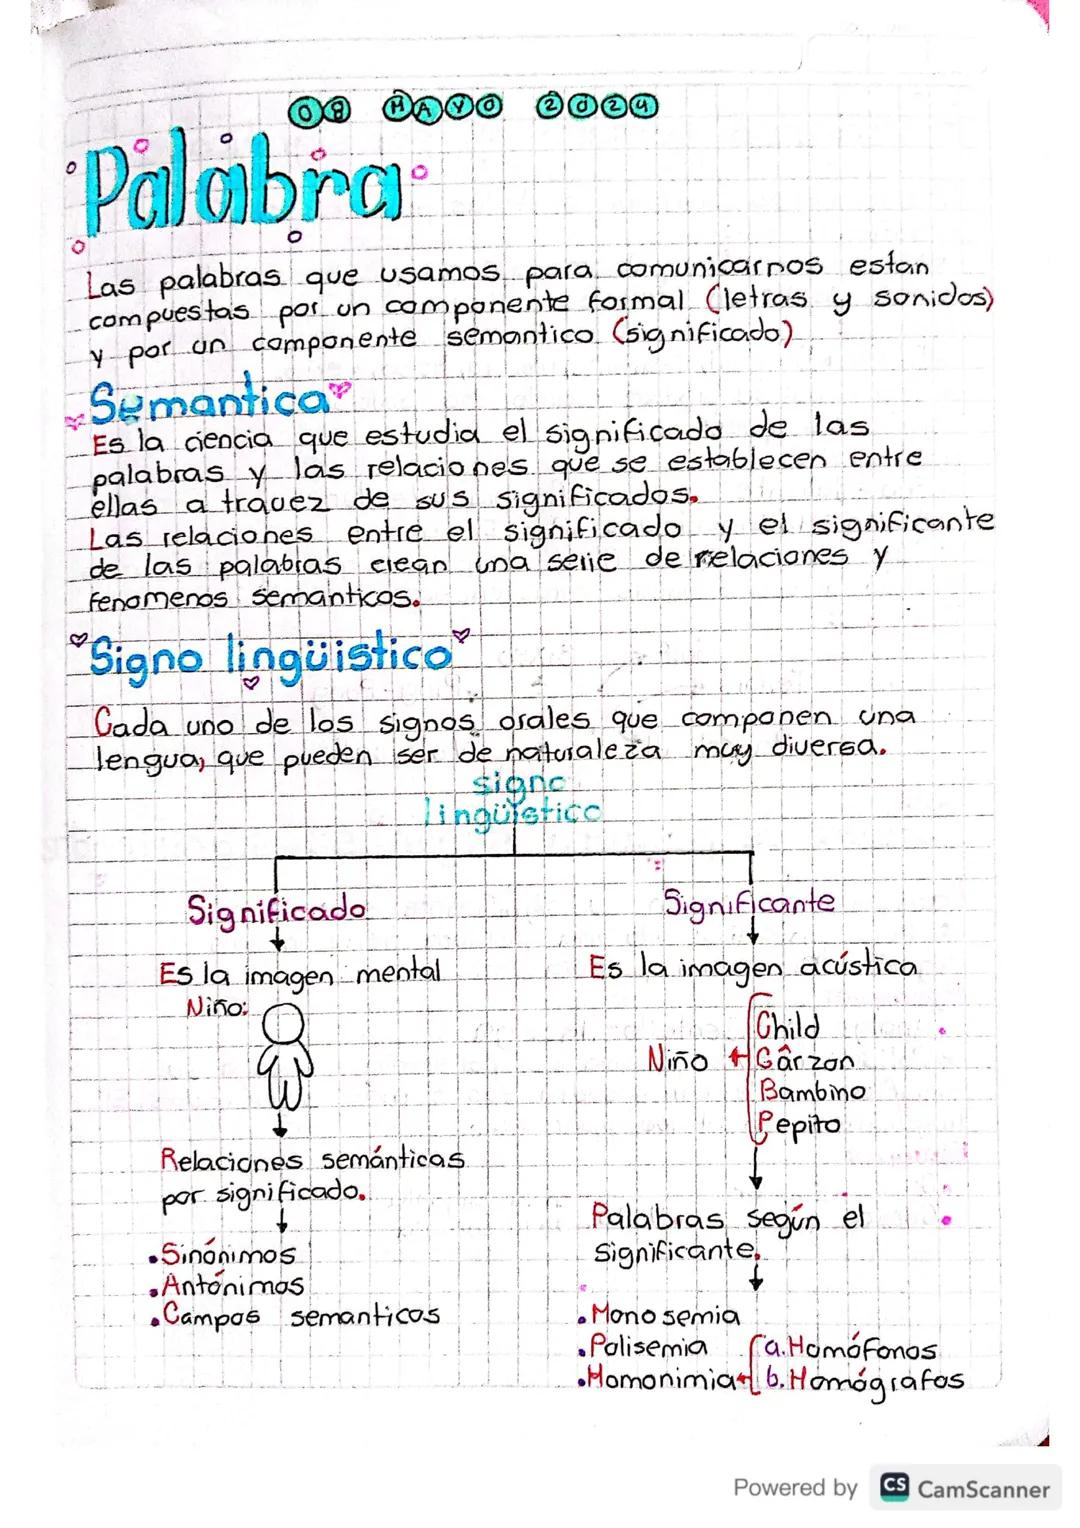 08 MAYO 2024
Palabra
Las palabras que usamos para comunicarnos estan
compuestas por un componente formal (letras y sonidos)
y por un componente semantico (significado)
Semantica
Es la ciencia que estudia el significado de las
palabras y las relaciones que se establecen entre
ellas a travez de sus significados.
Las relaciones entre el significado y el significante
de las palabras crean una serie de relaciones y
fenomenos semanticos.
Signo lingüistico
Cada uno de los signos orales que componen una
lengua, que pueden ser de naturaleza muy diversa.
signo
lingüistico
Significado
Es la imagen mental
Niño:
Relaciones semánticas
por significado.
•Sinónimos
•Antónimos
•Campos semanticos
Significante
Es la imagen acústica
Child
Niño Gârzon
Bambino
Pepito
Palabras según el
significante.
•Monosemia
•Polisemia a. Homófonos
•Homonimia b. Homógrafos
Powered by CS CamScanner